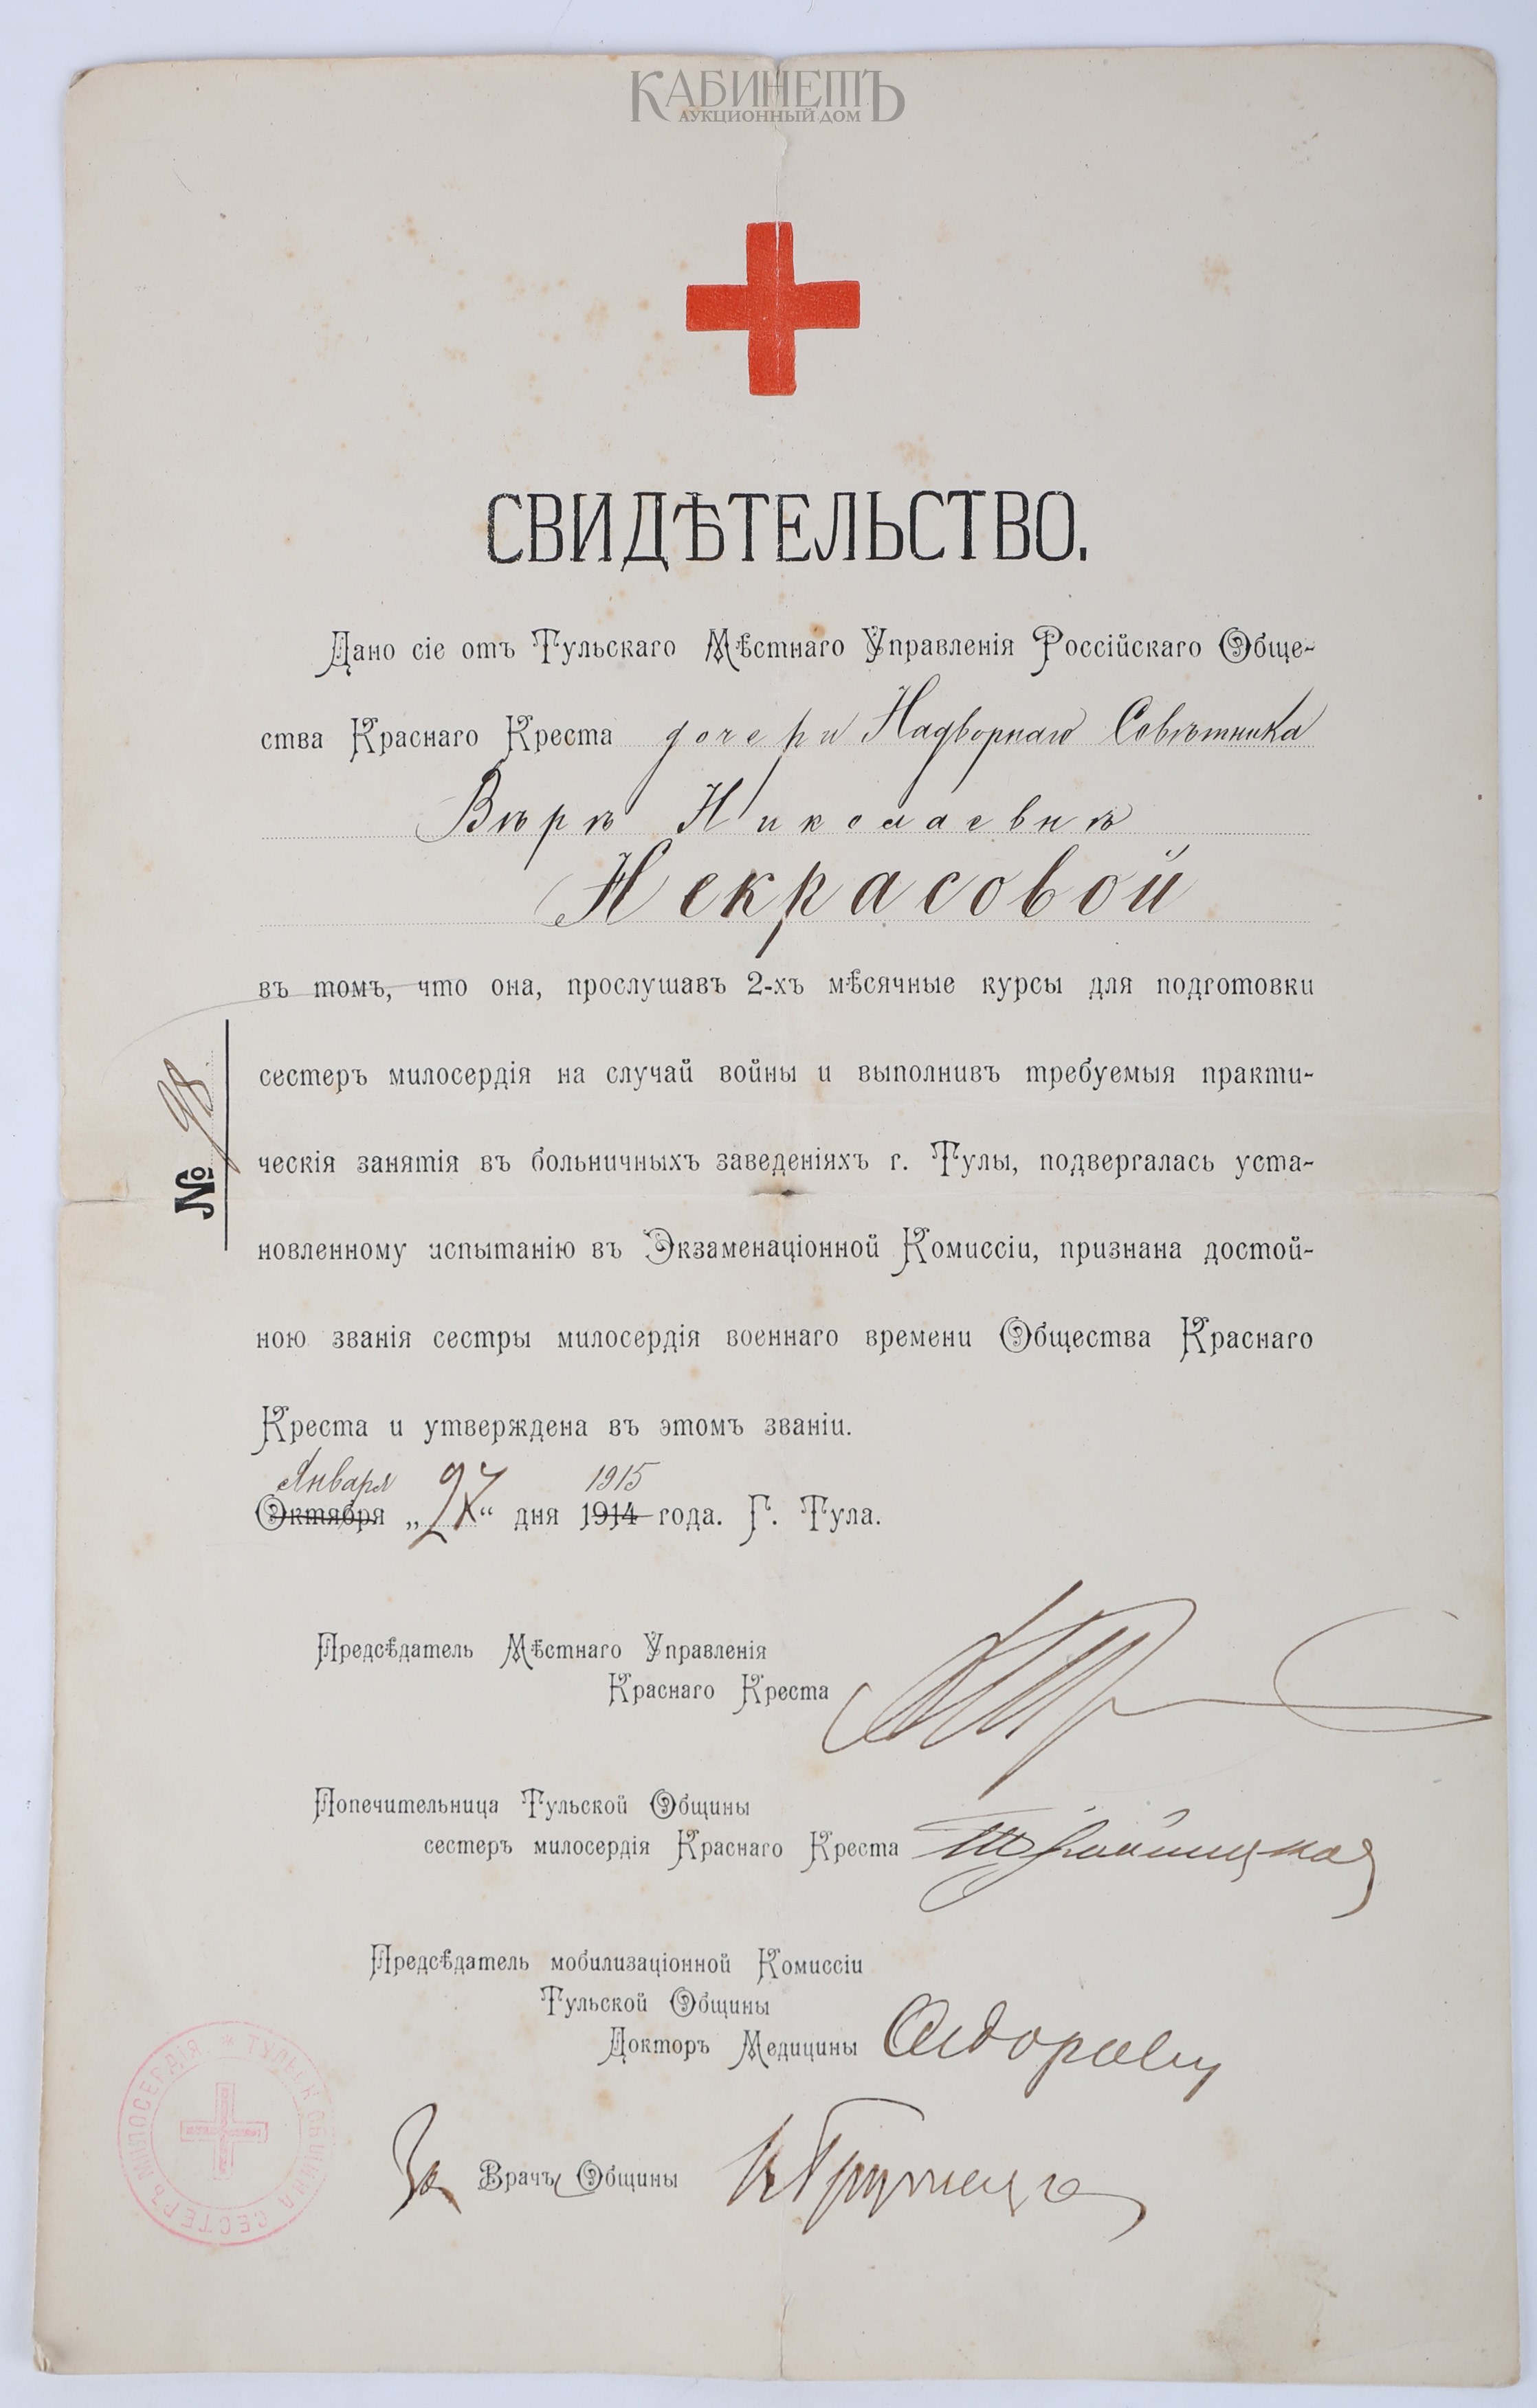 КАБИНЕТЪ
АУКЦИОННЫЙ ДОМ
СВИДѢТЕЛЬСТВО.
Дано сіе отъ Тульскаго Мѣстнаго Управленія Россійскаго Обще-
ства Краснаго Креста дочери Надворнаго Совѣтника
Вѣрѣ Николаевнѣ
Некрасовой
въ томъ, что она, прослушавъ 2-хъ мѣсячные курсы для подготовки
сестеръ милосердія на случай войны и выполнивъ требуемыя практи-
ческія занятія въ больничныхъ заведеніяхъ г. Тулы, подвергалась уста-
новленному испытанію въ Экзаменаціонной Комиссіи, признана достой-
ною званія сестры милосердія военнаго времени Общества Краснаго
Креста и утверждена въ этомъ званіи.
Января 1915
Октября „27“ дня 1914 года. Г. Тула.
№ 98
Предсѣдатель Мѣстнаго Управленія
Краснаго Креста
Попечительница Тульской Общины
сестеръ милосердія Краснаго Креста
Предсѣдатель мобилизаціонной Комиссіи
Тульской Общины
Докторъ Медицины
За Врачъ Общины
ТУЛЬСК. ОБЩИНА СЕСТЕРЪ МИЛОСЕРДІЯ